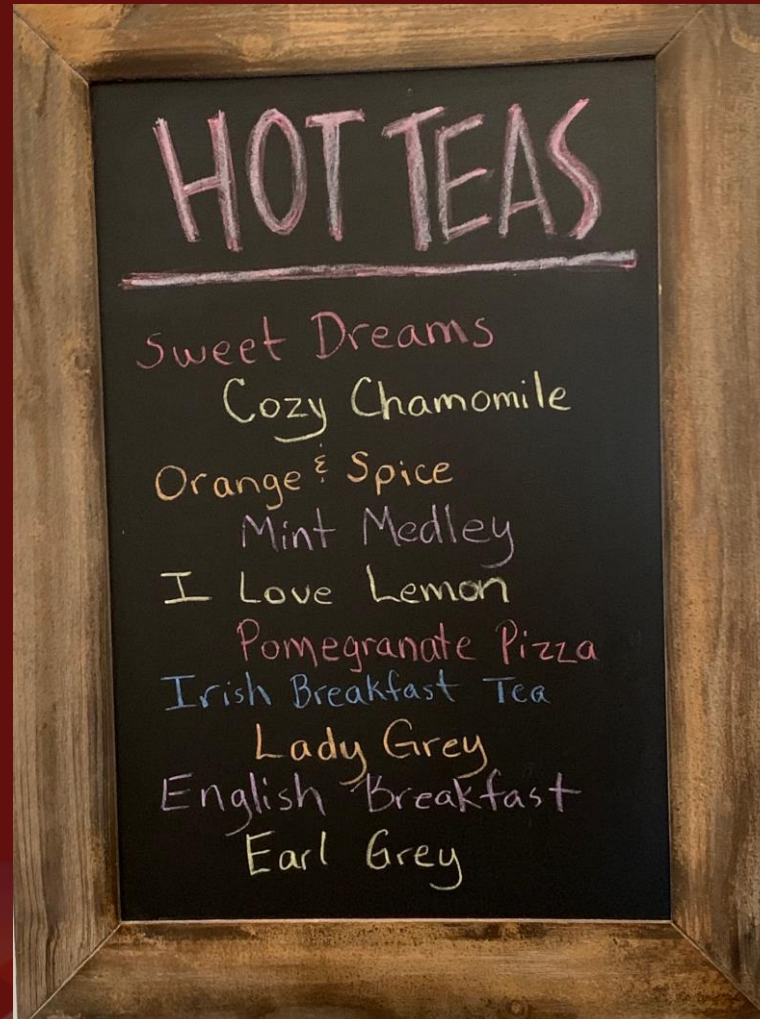 HOT TEAS
Sweet Dreams
Cozy Chamomile
Orange & Spice
Mint Medley
I Love Lemon
Pomegranate Pizza
Irish Breakfast Tea
Lady Grey
English Breakfast
Earl Grey